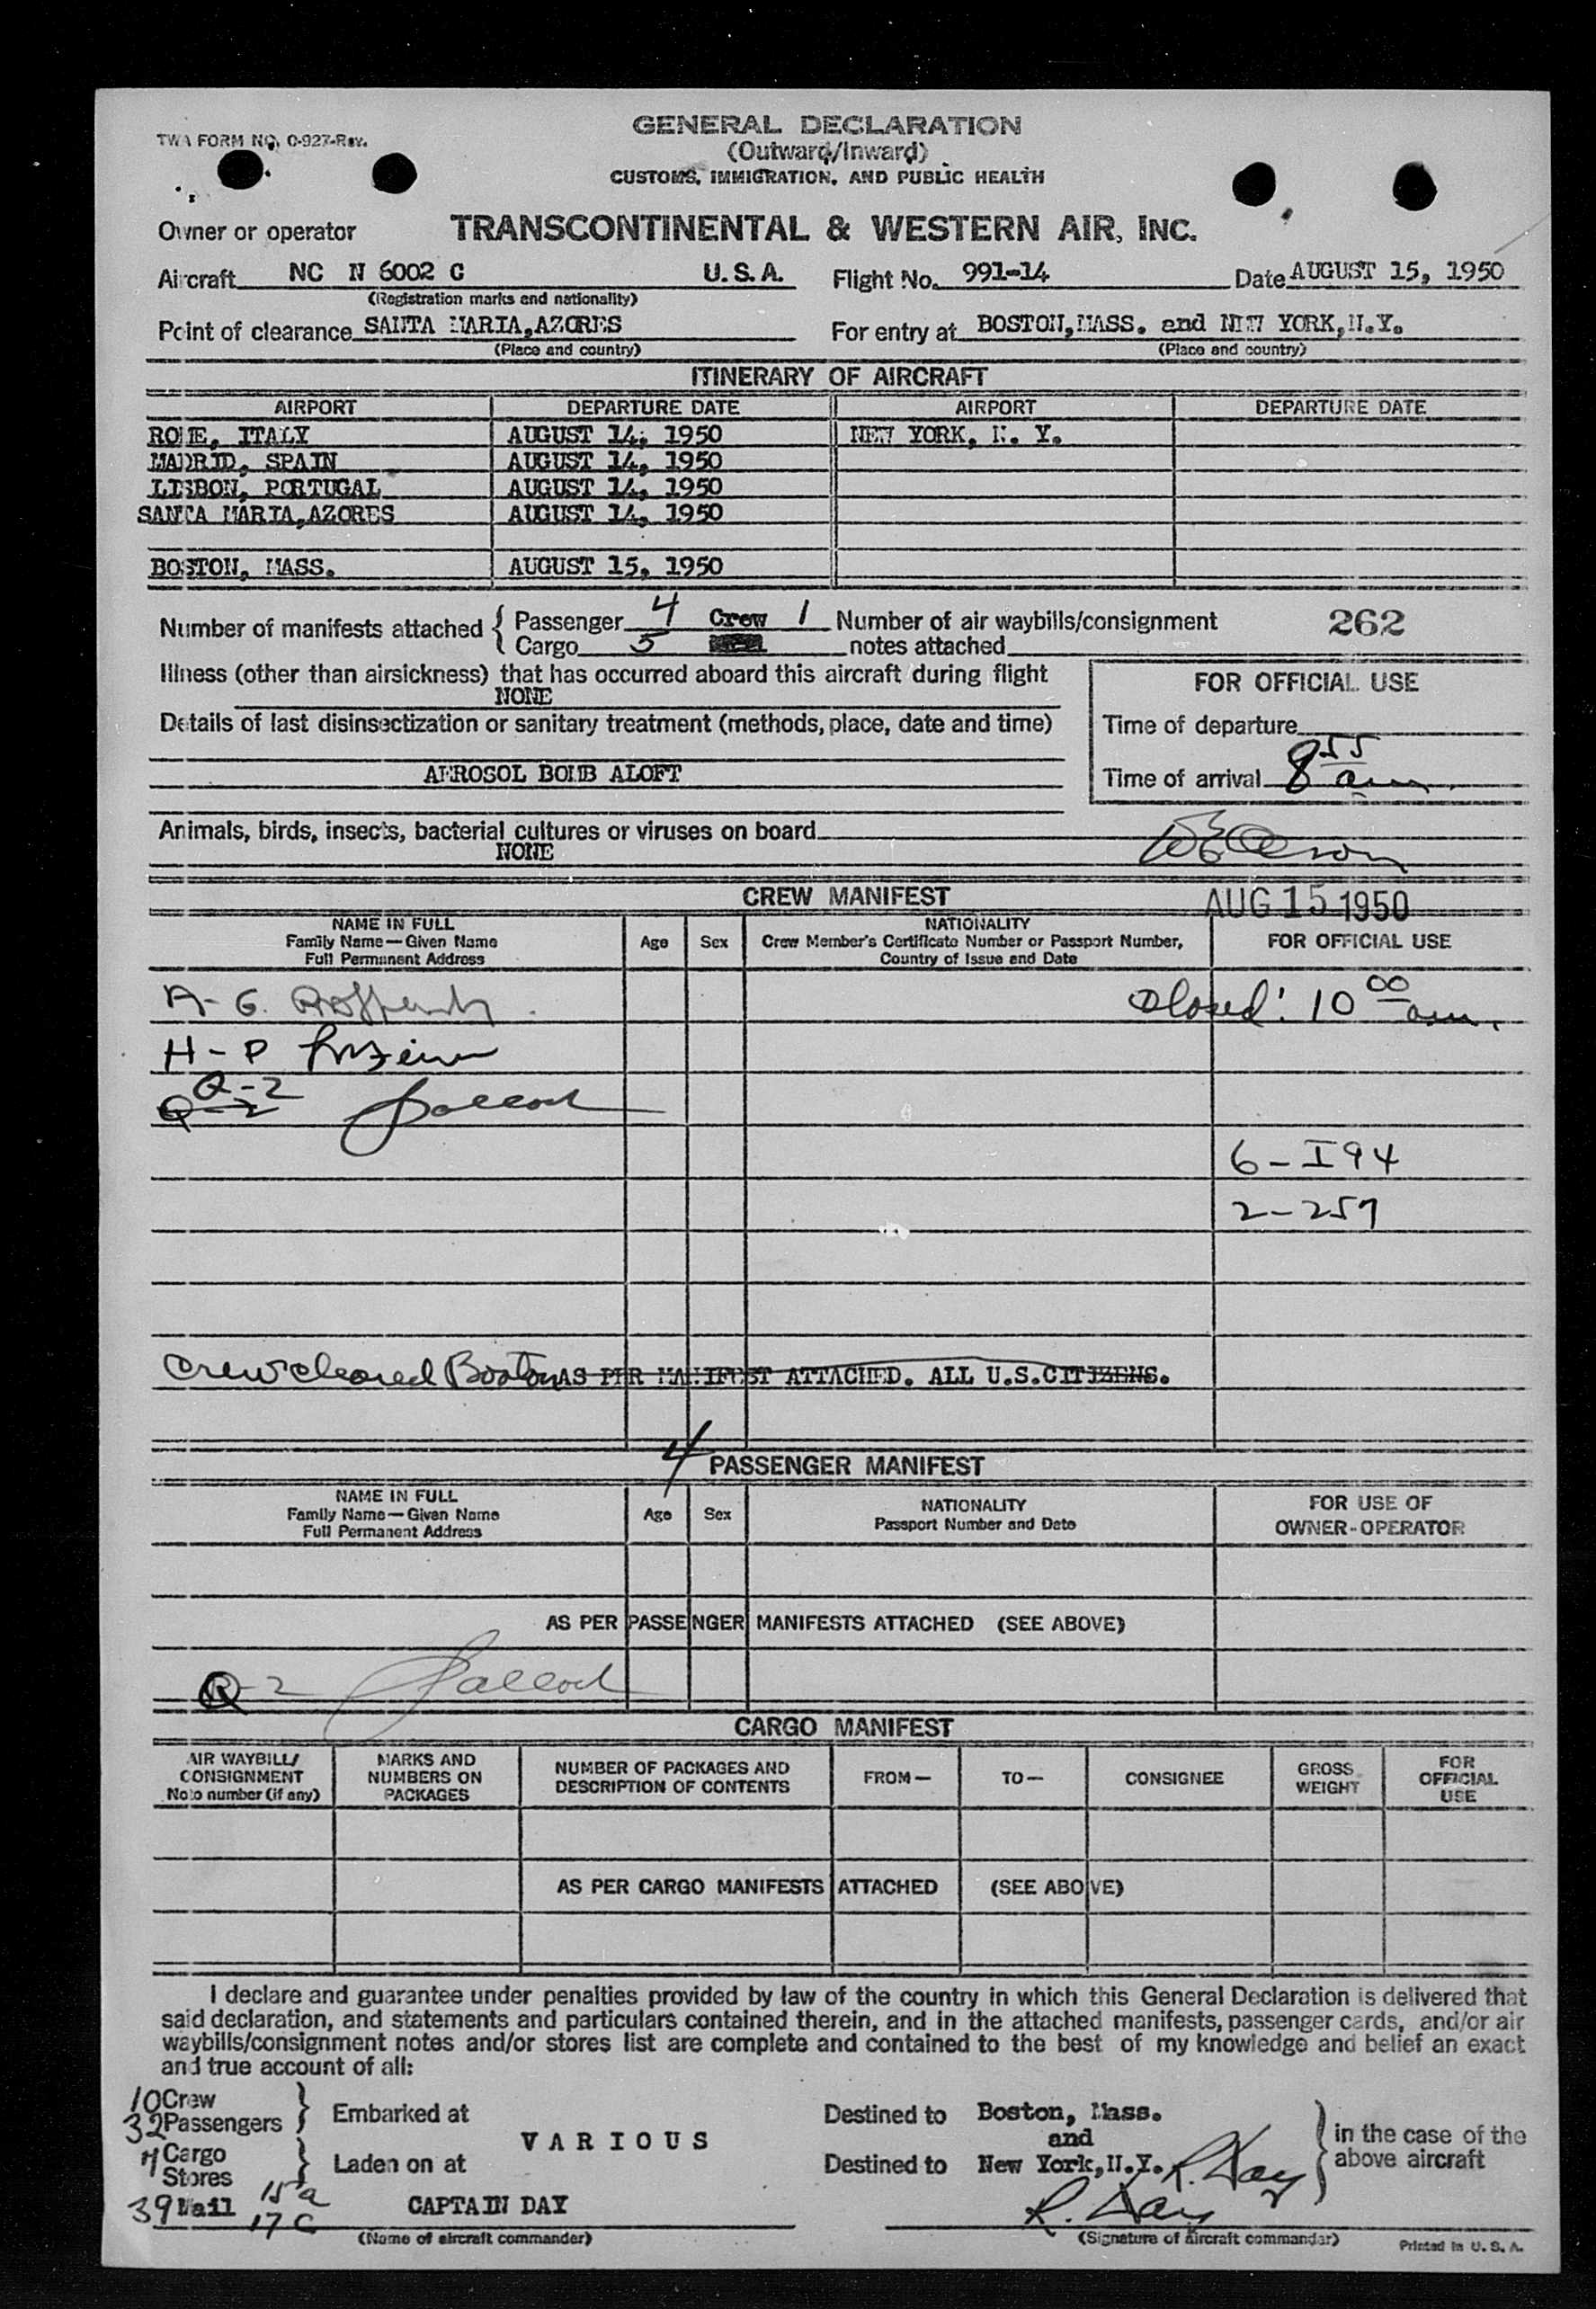 GENERAL DECLARATION
TWA FORM NO. O-927-Rev.
(Outward/Inward)
CUSTOMS, IMMIGRATION, AND PUBLIC HEALTH
Owner or operator TRANSCONTINENTAL & WESTERN AIR, INC.
Aircraft NC N 6002 C U.S.A. Flight No. 991-14 Date AUGUST 15, 1950
(Registration marks and nationality)
Point of clearance SANTA MARIA,AZORES For entry at BOSTON,MASS. and NEW YORK,N.Y.
(Place and country) (Place and country)
ITINERARY OF AIRCRAFT
AIRPORT DEPARTURE DATE AIRPORT DEPARTURE DATE
ROME, ITALY AUGUST 14, 1950 NEW YORK, N. Y.
MADRID, SPAIN AUGUST 14, 1950
LISBON, PORTUGAL AUGUST 14, 1950
SANTA MARIA,AZORES AUGUST 14, 1950
BOSTON, MASS. AUGUST 15, 1950
Number of manifests attached { Passenger 4 Crew 1 Number of air waybills/consignment 262
Cargo 5 notes attached
Illness (other than airsickness) that has occurred aboard this aircraft during flight
NONE
FOR OFFICIAL USE
Details of last disinsectization or sanitary treatment (methods, place, date and time)
Time of departure
AEROSOL BOMB ALOFT
Time of arrival 8 55 am
Animals, birds, insects, bacterial cultures or viruses on board
NONE
CREW MANIFEST
AUG 15 1950
NAME IN FULL
Family Name—Given Name
Full Permanent Address
Age Sex
NATIONALITY
Crew Member's Certificate Number or Passport Number,
Country of Issue and Date
FOR OFFICIAL USE
A-G.
Closed! 10 00 am.
H-P
Q-2
Q-2
6-I94
2-257
Crew cleared Boston AS PER MANIFEST ATTACHED. ALL U.S.CITIZENS.
4
PASSENGER MANIFEST
NAME IN FULL
Family Name—Given Name
Full Permanent Address
Age Sex
NATIONALITY
Passport Number and Date
FOR USE OF
OWNER-OPERATOR
AS PER PASSENGER MANIFESTS ATTACHED (SEE ABOVE)
Q-2
CARGO MANIFEST
AIR WAYBILL/
CONSIGNMENT
Note number (if any)
MARKS AND
NUMBERS ON
PACKAGES
NUMBER OF PACKAGES AND
DESCRIPTION OF CONTENTS
FROM—
TO—
CONSIGNEE
GROSS
WEIGHT
FOR
OFFICIAL
USE
AS PER CARGO MANIFESTS ATTACHED (SEE ABOVE)
I declare and guarantee under penalties provided by law of the country in which this General Declaration is delivered that
said declaration, and statements and particulars contained therein, and in the attached manifests, passenger cards, and/or air
waybills/consignment notes and/or stores list are complete and contained to the best of my knowledge and belief an exact
and true account of all:
10 Crew
32 Passengers } Embarked at Destined to Boston, Mass.
VARIOUS and
Cargo
Stores } Laden on at Destined to New York,N.Y. R. Day
} in the case of the
above aircraft
39 Mail 15a
17c
CAPTAIN DAY R. Day
(Name of aircraft commander) (Signature of aircraft commander) Printed in U. S. A.